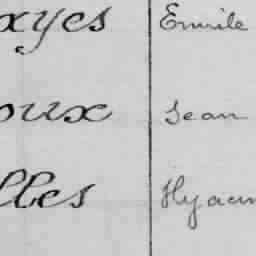 xyes Emile
oux Jean
lles Hyacin